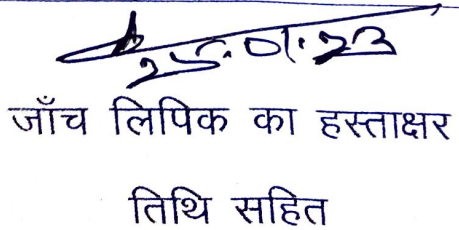 25.01.23
जाँच लिपिक का हस्ताक्षर
तिथि सहित